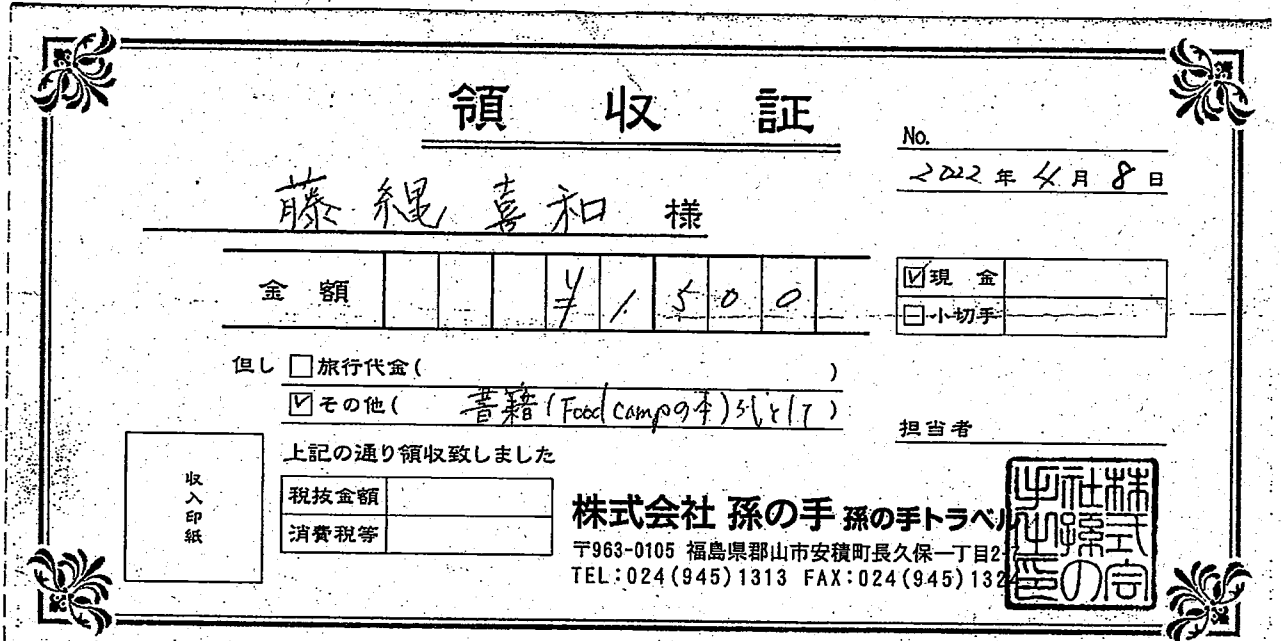 領収証
No.
2022年4月8日
藤縄喜和 様
金額 ¥1,500
☑現金
□小切手
但し □旅行代金( )
☑その他( 書籍(Food campの本)代として )
担当者
上記の通り領収致しました
収入印紙
税抜金額
消費税等
株式会社 孫の手 孫の手トラベル
〒963-0105 福島県郡山市安積町長久保一丁目2-7
TEL:024(945)1313 FAX:024(945)1324
株式会社孫の手之印